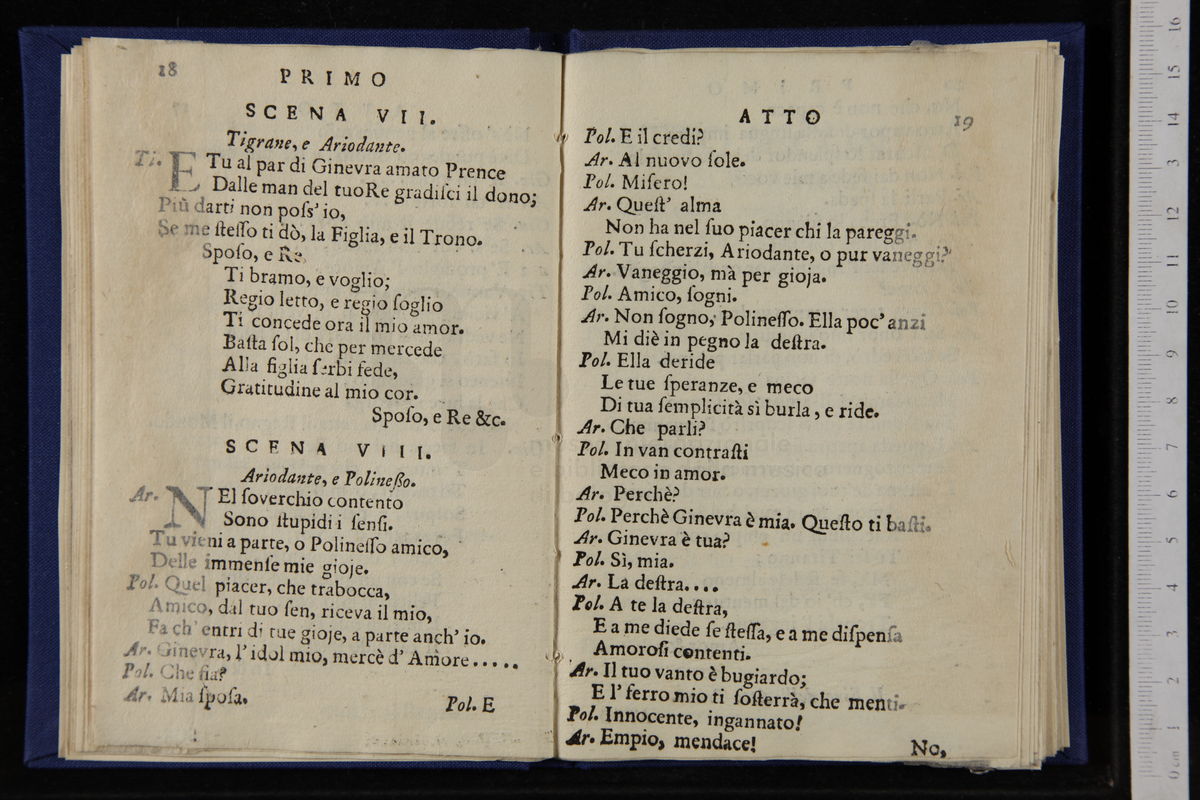 18
PRIMO
SCENA VII.
Tigrane, e Ariodante.
Ti. ETu al par di Ginevra amato Prence
Dalle man del tuoRe gradiſci il dono;
Più darti non poſs' io,
Se me ſteſſo ti dò, la Figlia, e il Trono.
Spoſo, e Re
Ti bramo, e voglio;
Regio letto, e regio ſoglio
Ti concede ora il mio amor.
Baſta ſol, che per mercede
Alla figlia ſerbi fede,
Gratitudine al mio cor.
Spoſo, e Re &c.
SCENA VIII.
Ariodante, e Polineßo.
Ar. NEl ſoverchio contento
Sono ſtupidi i ſenſi.
Tu vieni a parte, o Polineſſo amico,
Delle immenſe mie gioje.
Pol. Quel piacer, che trabocca,
Amico, dal tuo ſen, riceva il mio,
Fa ch' entri di tue gioje, a parte anch' io.
Ar. Ginevra, l' idol mio, mercè d' Amore.....
Pol. Che ſia?
Ar. Mia ſpoſa.
Pol. E
ATTO
19
Pol. E il credi?
Ar. Al nuovo ſole.
Pol. Miſero!
Ar. Queſt' alma
Non ha nel ſuo piacer chi la pareggi.
Pol. Tu ſcherzi, Ariodante, o pur vaneggi?
Ar. Vaneggio, mà per gioja.
Pol. Amico, ſogni.
Ar. Non ſogno, Polineſſo. Ella poc' anzi
Mi diè in pegno la deſtra.
Pol. Ella deride
Le tue ſperanze, e meco
Di tua ſemplicità sì burla, e ride.
Ar. Che parli?
Pol. In van contraſti
Meco in amor.
Ar. Perchè?
Pol. Perchè Ginevra è mia. Queſto ti baſti.
Ar. Ginevra è tua?
Pol. Sì, mia.
Ar. La deſtra....
Pol. A te la deſtra,
E a me diede ſe ſteſſa, e a me diſpenſa
Amoroſi contenti.
Ar. Il tuo vanto è bugiardo;
E l' ferro mio ti ſoſterrà, che menti.
Pol. Innocente, ingannato!
Ar. Empio, mendace!
No,